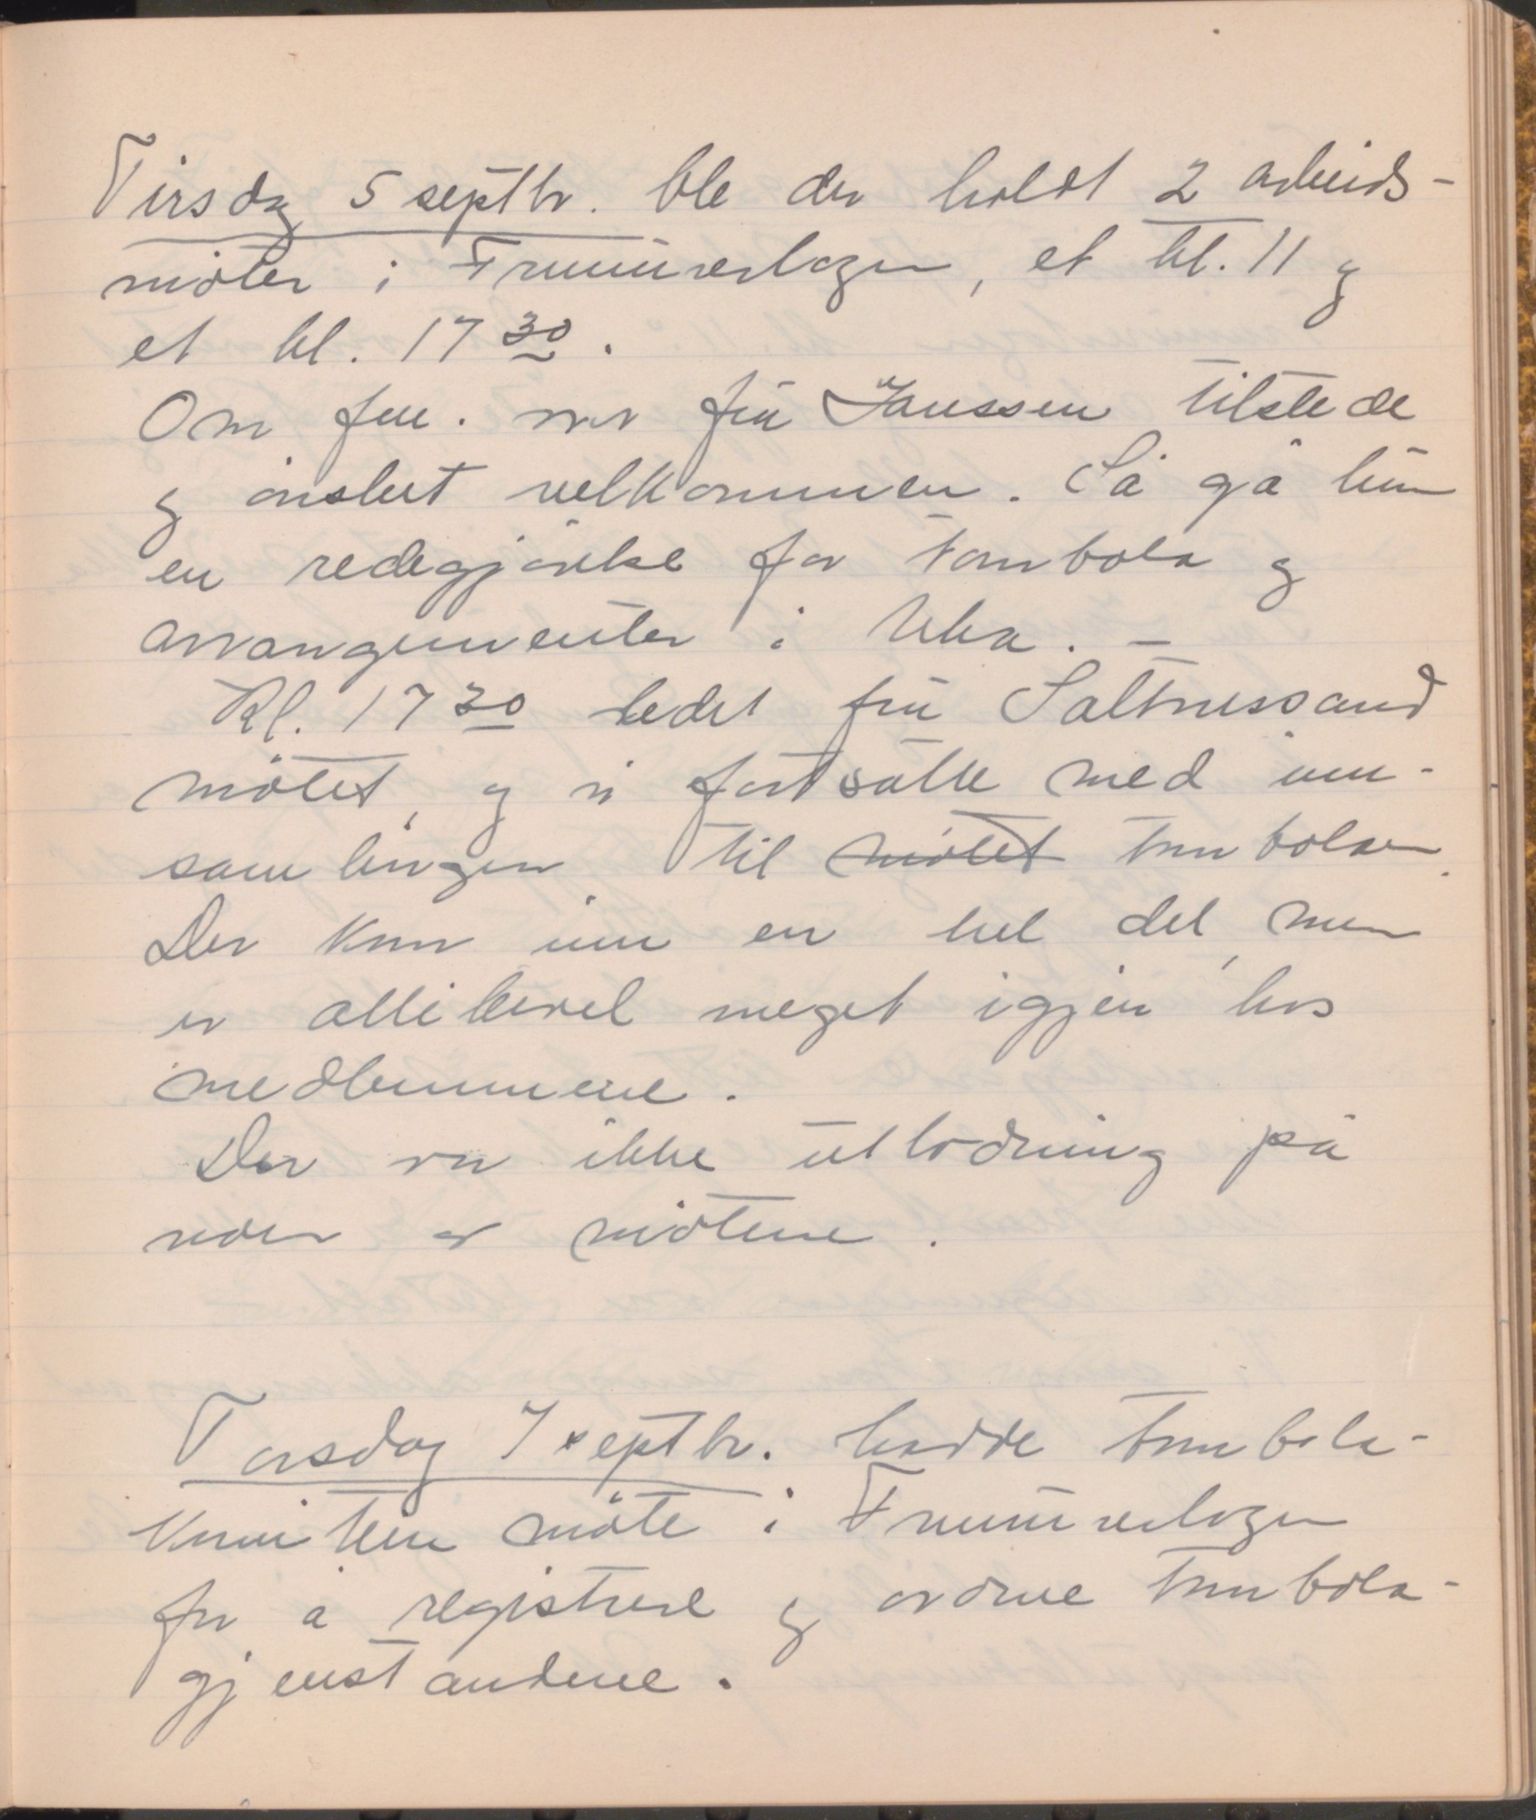 Tirsdag 5 septbr. ble der holdt 2 arbeids-
møter i Frimurerlogen, et kl. 11 og
et kl. 17 30.
Om fm. var frü Janssen tilstede
og ønsket velkommen. Så ga hun
en redegjørelse for tombola og
arrangementer i Uka. –
Kl. 17 30 ledet frü Saltnessand
møtet, og vi fortsatte med inn-
samlingen til møtet tombolaen.
Der kom inn en hel del, men
er allikevel meget igjen hos
medlemmene.
Der var ikke utlodning på
noen av møtene.
Torsdag 7 septbr. hadde tombola-
komiteen møte i Frimurerlogen
for å registrere og ordne tombola-
gjenstandene.